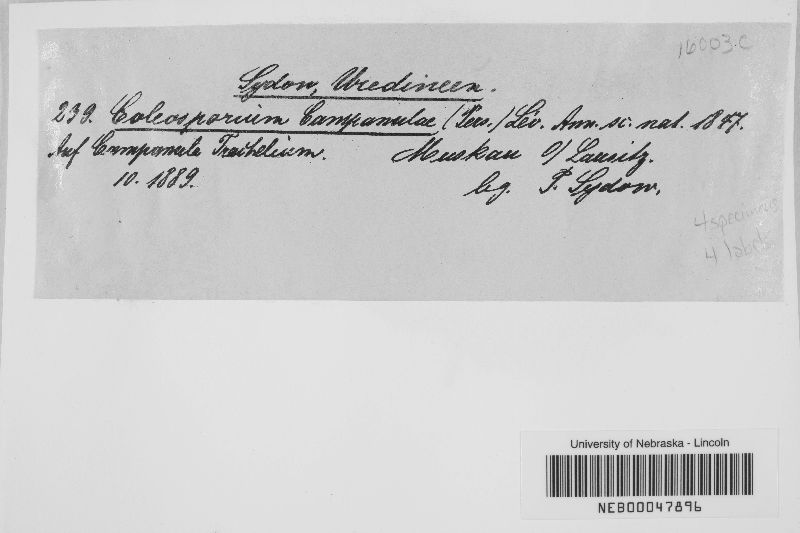 16003.C
Sydow, Uredineen.
239. Coleosporium Campanulae (Pers.) Lév. Ann. sc. nat. 1847.
Auf Campanula Trachelium. Muskau O/ Lausitz.
10. 1889. leg. P. Sydow.
4 specimens
4 label
University of Nebraska - Lincoln
NEB00047896